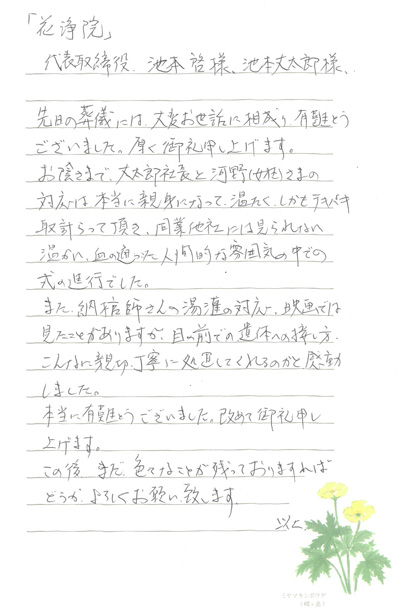 「花浄院」
代表取締役、池本 啓様、池本丈太郎様、
先日の葬儀には、大変お世話に相成り有難とう
ございました。厚く御礼申し上げます。
お陰さまで、丈太郎社長と河野(女性)さまの
対応は、本当に親身になって、温たく、しかもテキパキ
取計らって頂き、同業他社には見られない
温かい、血の通った人間的な雰囲気の中での
式の進行でした。
また、納棺師さんの湯灌の対応、映画では
見たことがありますが、目の前での遺体への接し方、
こんなに親切、丁寧に処置してくれるのかと感動
しました。
本当に有難とうございました。改めて御礼申し
上げます。
この後 まだ、色々なことが残っておりますれば
どうか、よろしくお願い致します。
以上
ミヤマキンポウゲ